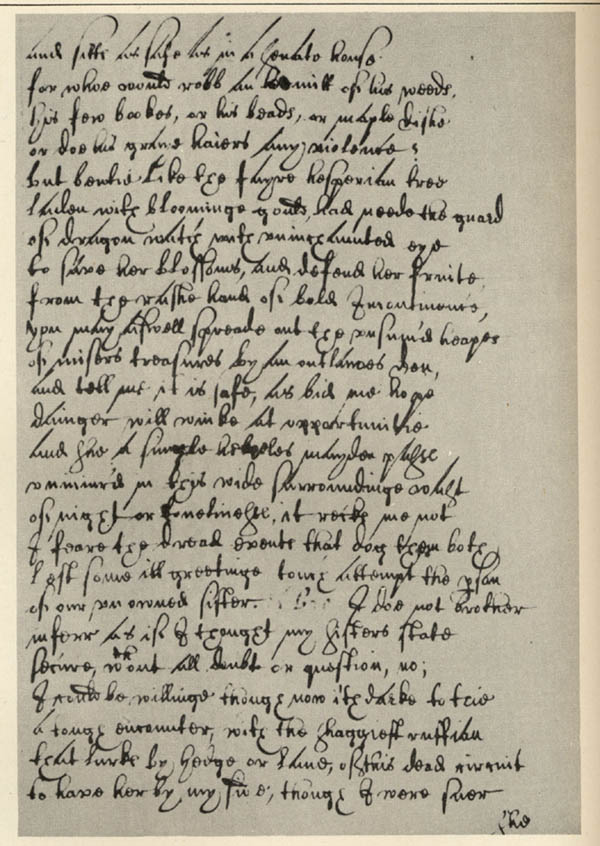 and sitts as safe as in a senate house
for whoe would robb an hermitt of his weeds,
his few bookes, or his beads, or maple dishe
or doe his graye haiers any violence?
but bewtie like the fayre hesperian tree
laden with bloominge gould, had neede the guard
of dragon watch with uninchaunted eye
to save her blossoms, and defend her fruite
from the rashe hand of bold Incontinence,
you may as well spreade out the unsum'd heapes
of misers treasures by an outlawes den,
and tell me it is safe, as bid me hope
daunger will winke at opportunitie
and she a single helpeles mayden passe
uniniur'd in this wide surroundinge wast
of night or lonelinesse, it recks me not
I feare the dread events that dog them both,
lest some ill greetinge touch attempt the person
of our unowned sister. I doe not brother
inferr as if I thought my sisters state
secure, without all doubt or question, no;
I could be willinge though now ith darke to trie
a tough encounter, with the shaggiest ruffian
that lurks by hedge or lane, of this dead circuit
to have her by my side, though I were suer
she